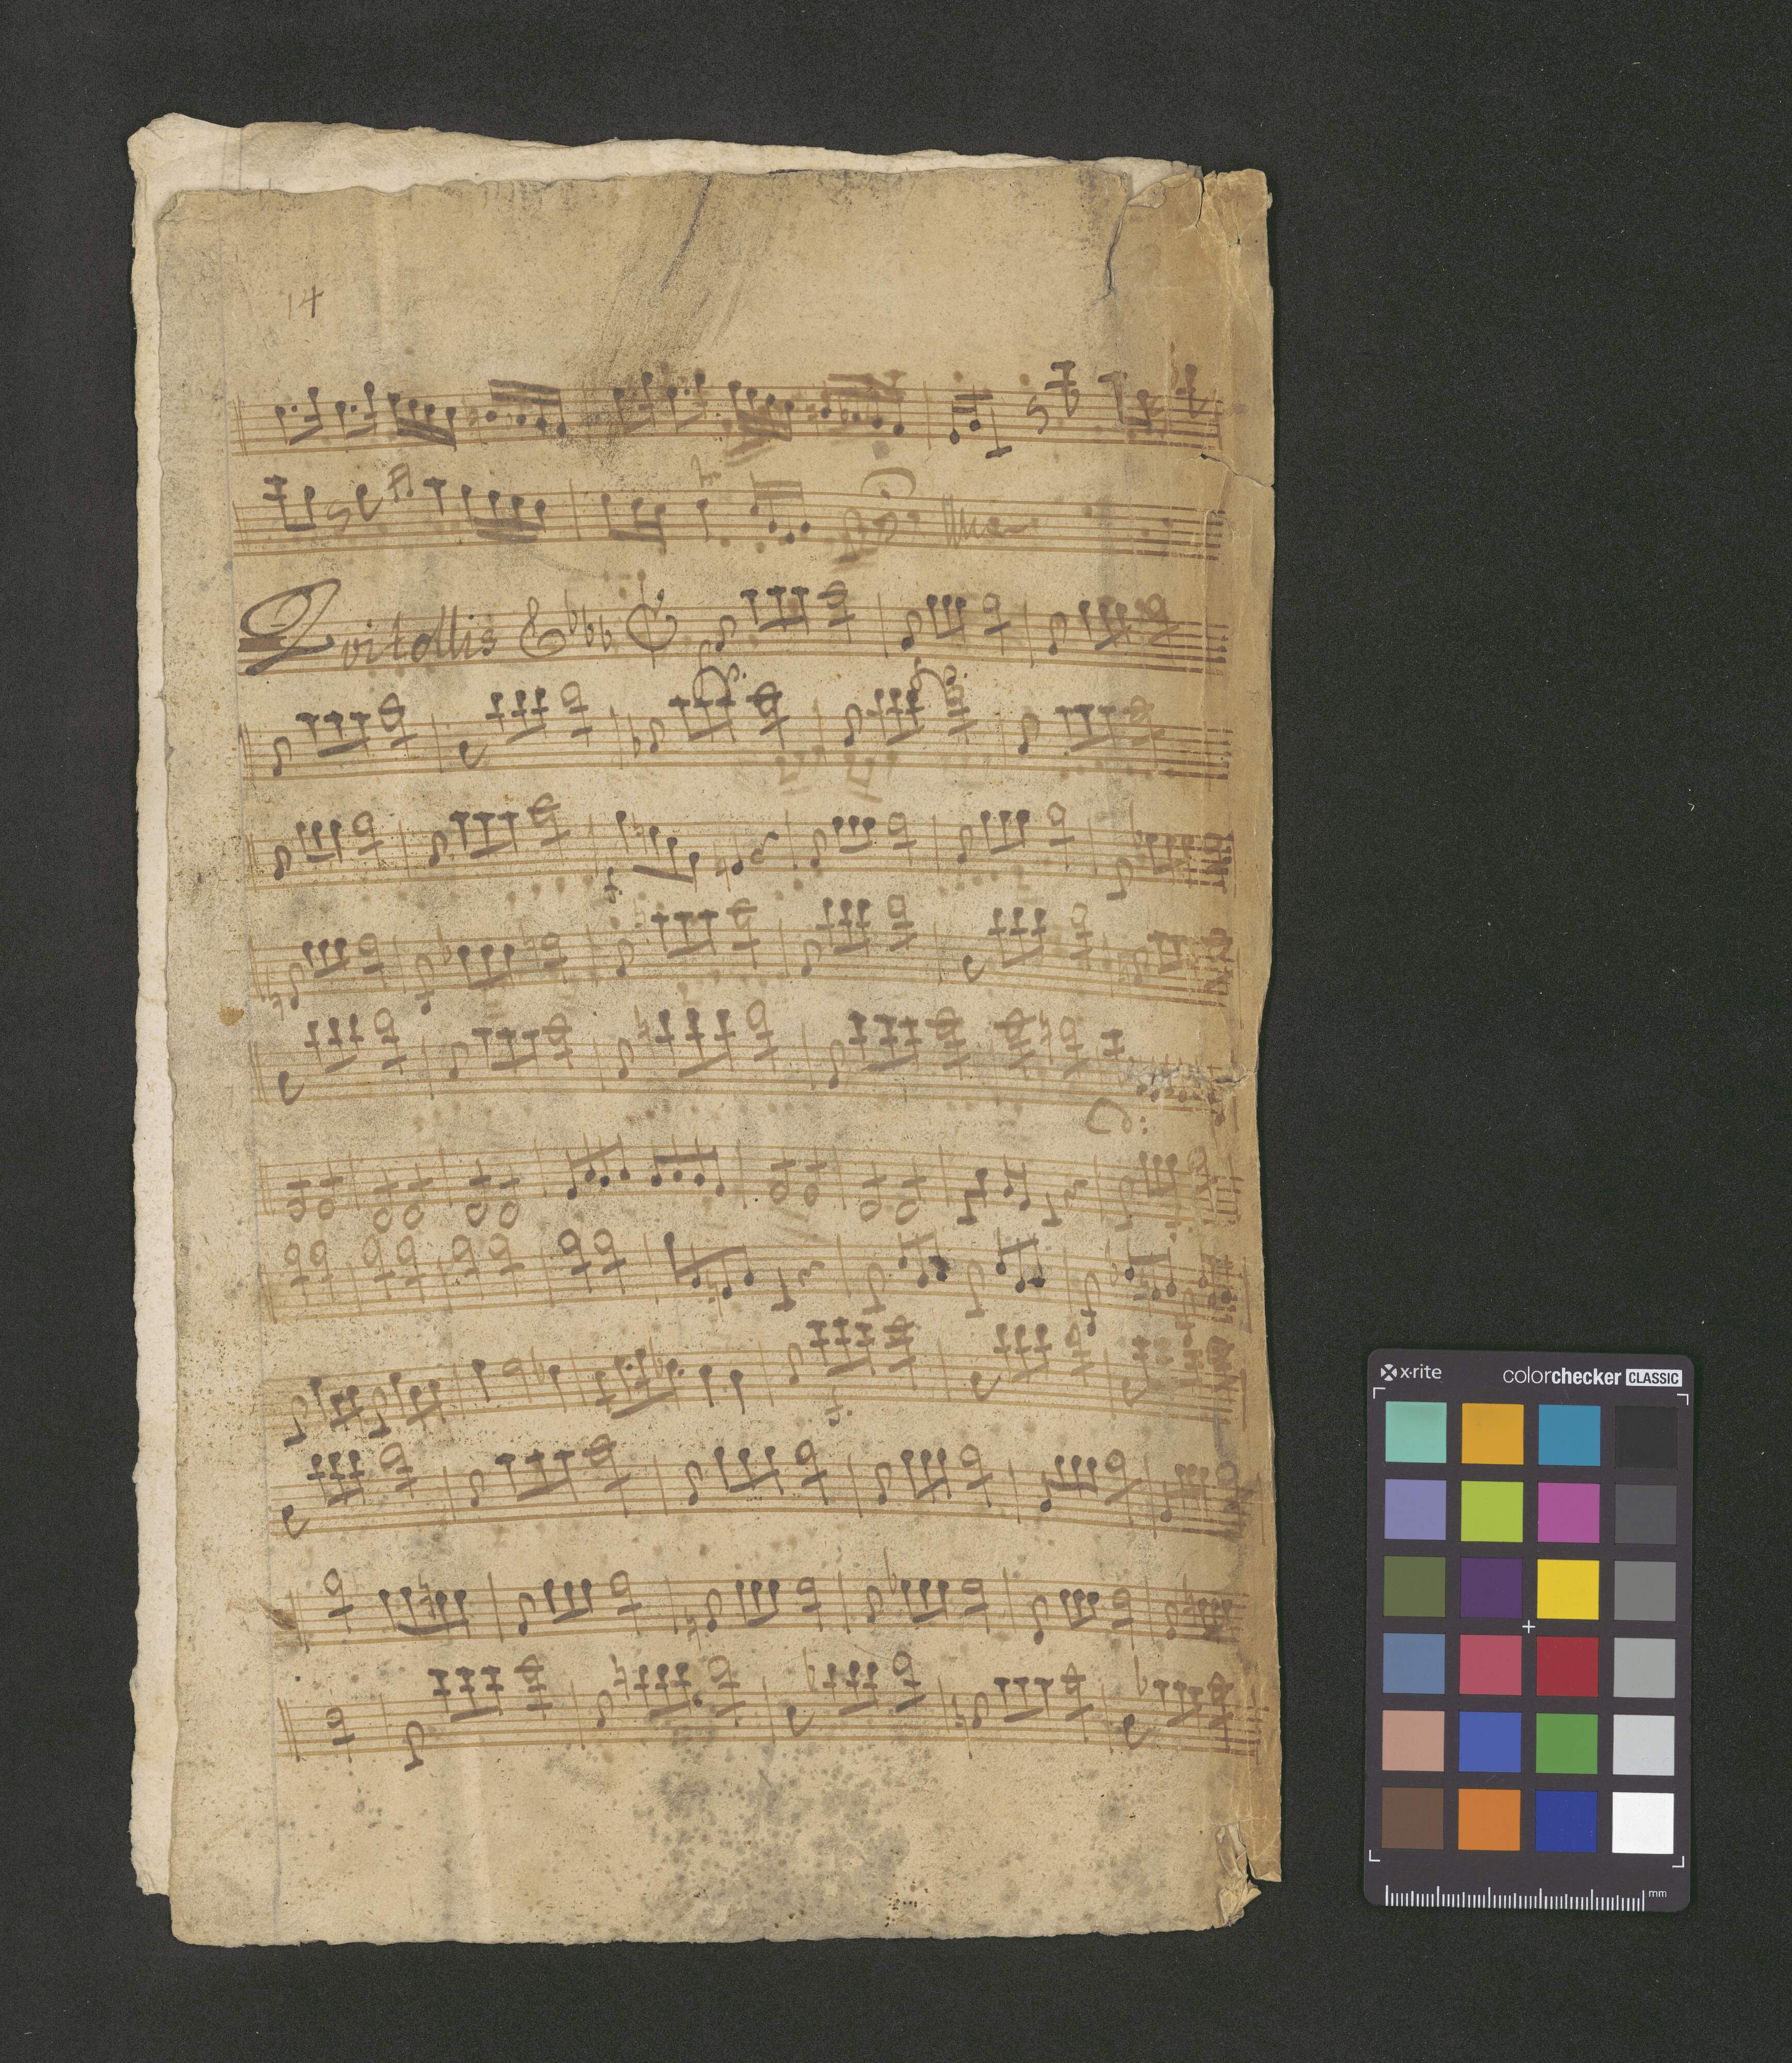 14
Qvitollis
x-rite
colorchecker CLASSIC
mm